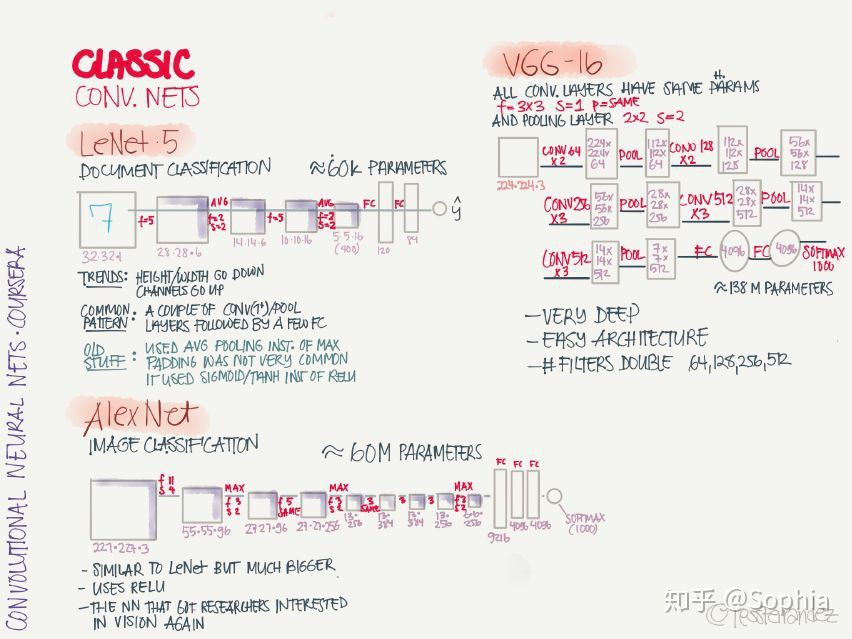 CLASSIC
CONV. NETS
LeNet-5
DOCUMENT CLASSIFICATION ≈60K PARAMETERS
7
f=5
AVG
f=2
s=2
f=5
AVG
f=2
s=2
FC
FC
ŷ
32·32·1
28·28·6
14·14·6
10·10·16
5·5·16
(400)
120
84
TRENDS: HEIGHT/WIDTH GO DOWN
CHANNELS GO UP
COMMON PATTERN: A COUPLE OF CONV(1+)/POOL
LAYERS FOLLOWED BY A FEW FC
OLD STUFF: USED AVG POOLING INST. OF MAX
PADDING WAS NOT VERY COMMON
IT USED SIGMOID/TANH INST OF RELU
AlexNet
IMAGE CLASSIFICATION ≈60M PARAMETERS
f 11
s 4
MAX
f 3
s 2
f 5
SAME
MAX
f 3
s 2
3
SAME
3
3
MAX
f 3
s 2
FC
FC
FC
227·227·3
55·55·96
27·27·96
27·27·256
13·
256
13·
384
13·
384
13·
256
6·6·
256
9216
4096
4096
SOFTMAX
(1000)
- SIMILAR TO LeNet BUT MUCH BIGGER
- USES RELU
- THE NN THAT GOT RESEARCHERS INTERESTED
IN VISION AGAIN
VGG-16
ALL CONV. LAYERS HAVE SAME PARAMS
f=3x3 s=1 p=SAME
AND POOLING LAYER 2x2 s=2
224·224·3
CONV 64
x2
224x
224x
64
POOL
112x
112x
64
CONV 128
x2
112x
112x
128
POOL
56x
56x
128
CONV256
x3
56x
56x
256
POOL
28x
28x
256
CONV 512
x3
28x
28x
512
POOL
14x
14x
512
CONV512
x3
14x
14x
512
POOL
7x
7x
512
FC
4096
FC
4096
SOFTMAX
1000
≈138M PARAMETERS
- VERY DEEP
- EASY ARCHITECTURE
- # FILTERS DOUBLE 64,128,256,512
CONVOLUTIONAL NEURAL NETS · COURSERA
知乎 @Sophia
©TessFerrandez